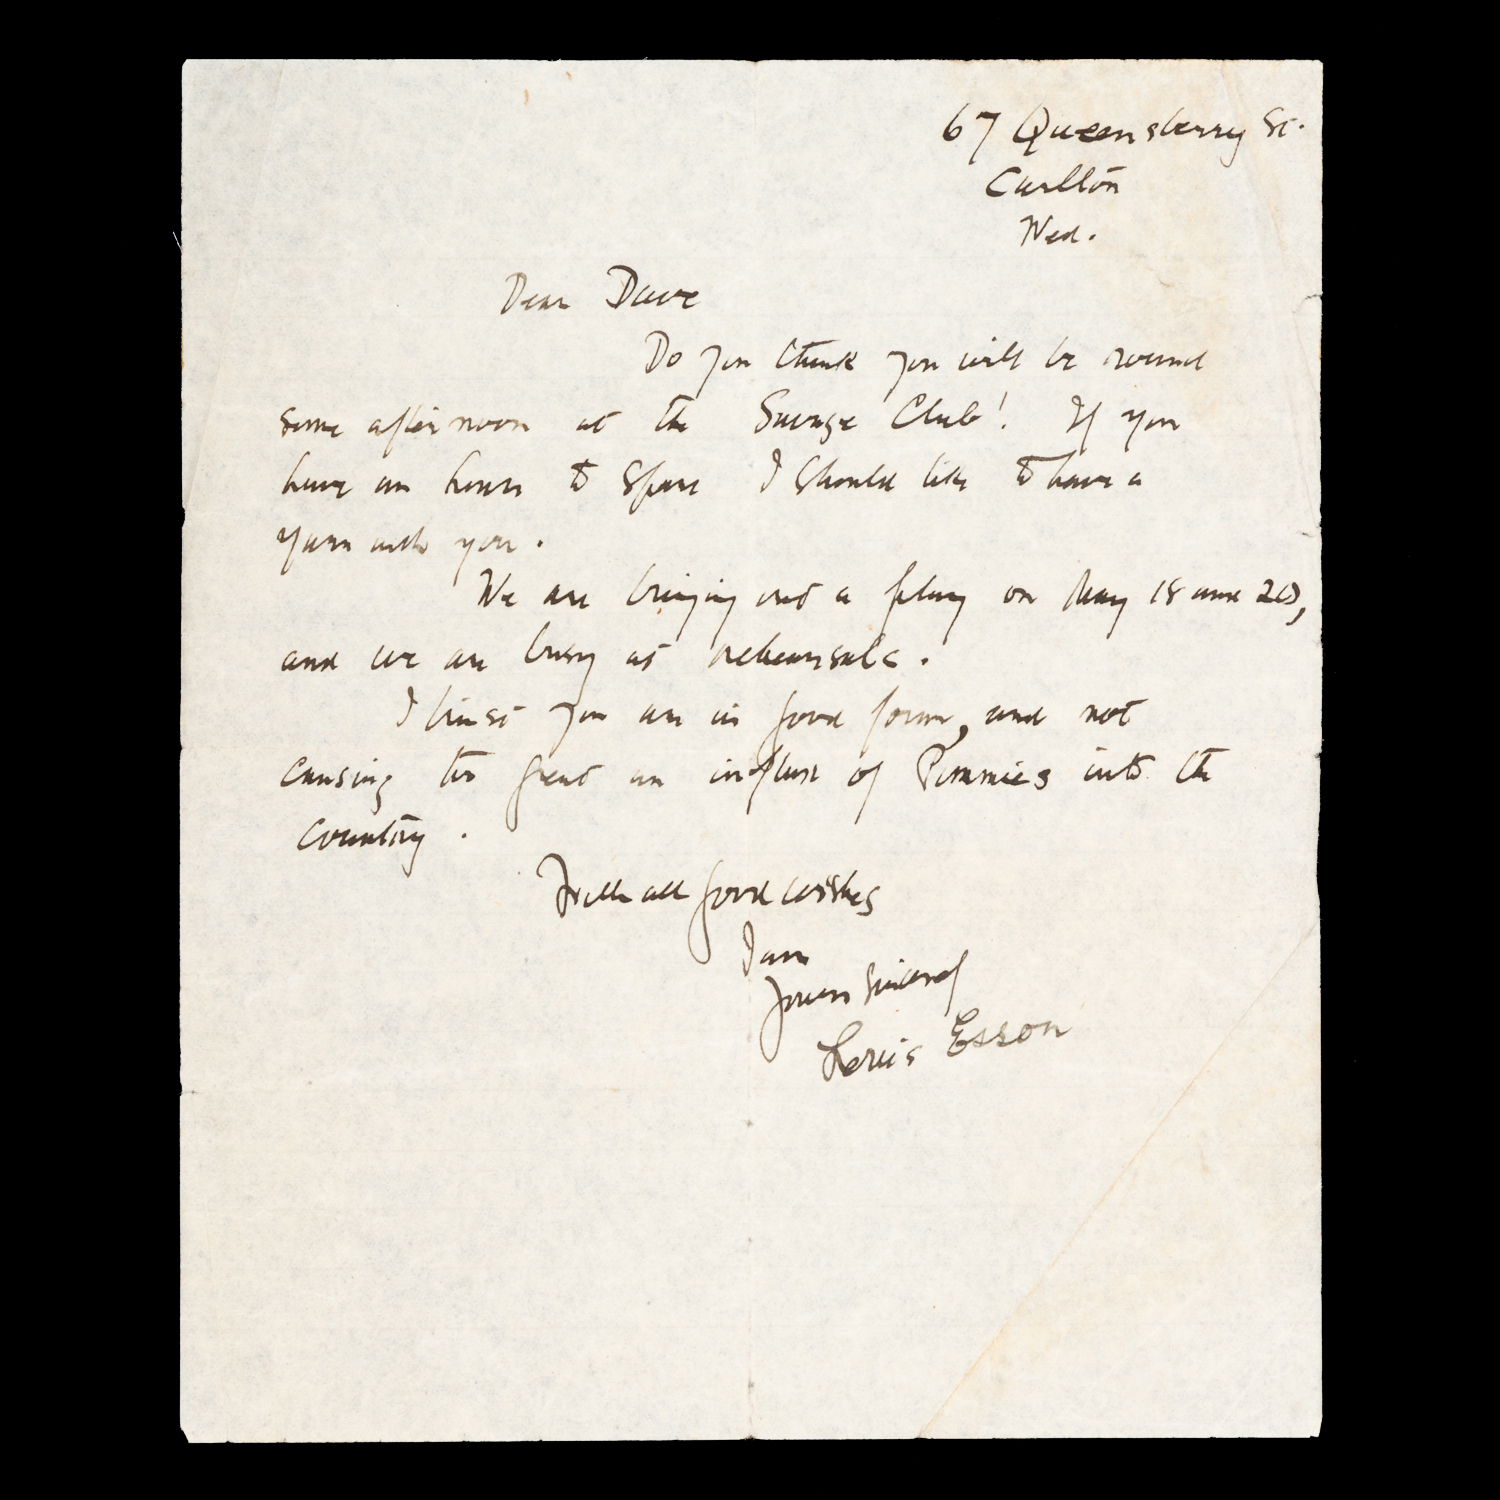 67 Queensberry St.
Carlton
Wed.
Dear Dave
Do you think you will be round
some afternoon at the Savage Club! If you
have an hour to spare I should like to have a
yarn with you.
We are bringing out a play on May 18 and 20,
and we are busy at rehearsals.
I trust you are in good form, and not
causing too great an influx of Pommies into the
country.
With all good wishes
I am
Yours sincerely
Louis Esson